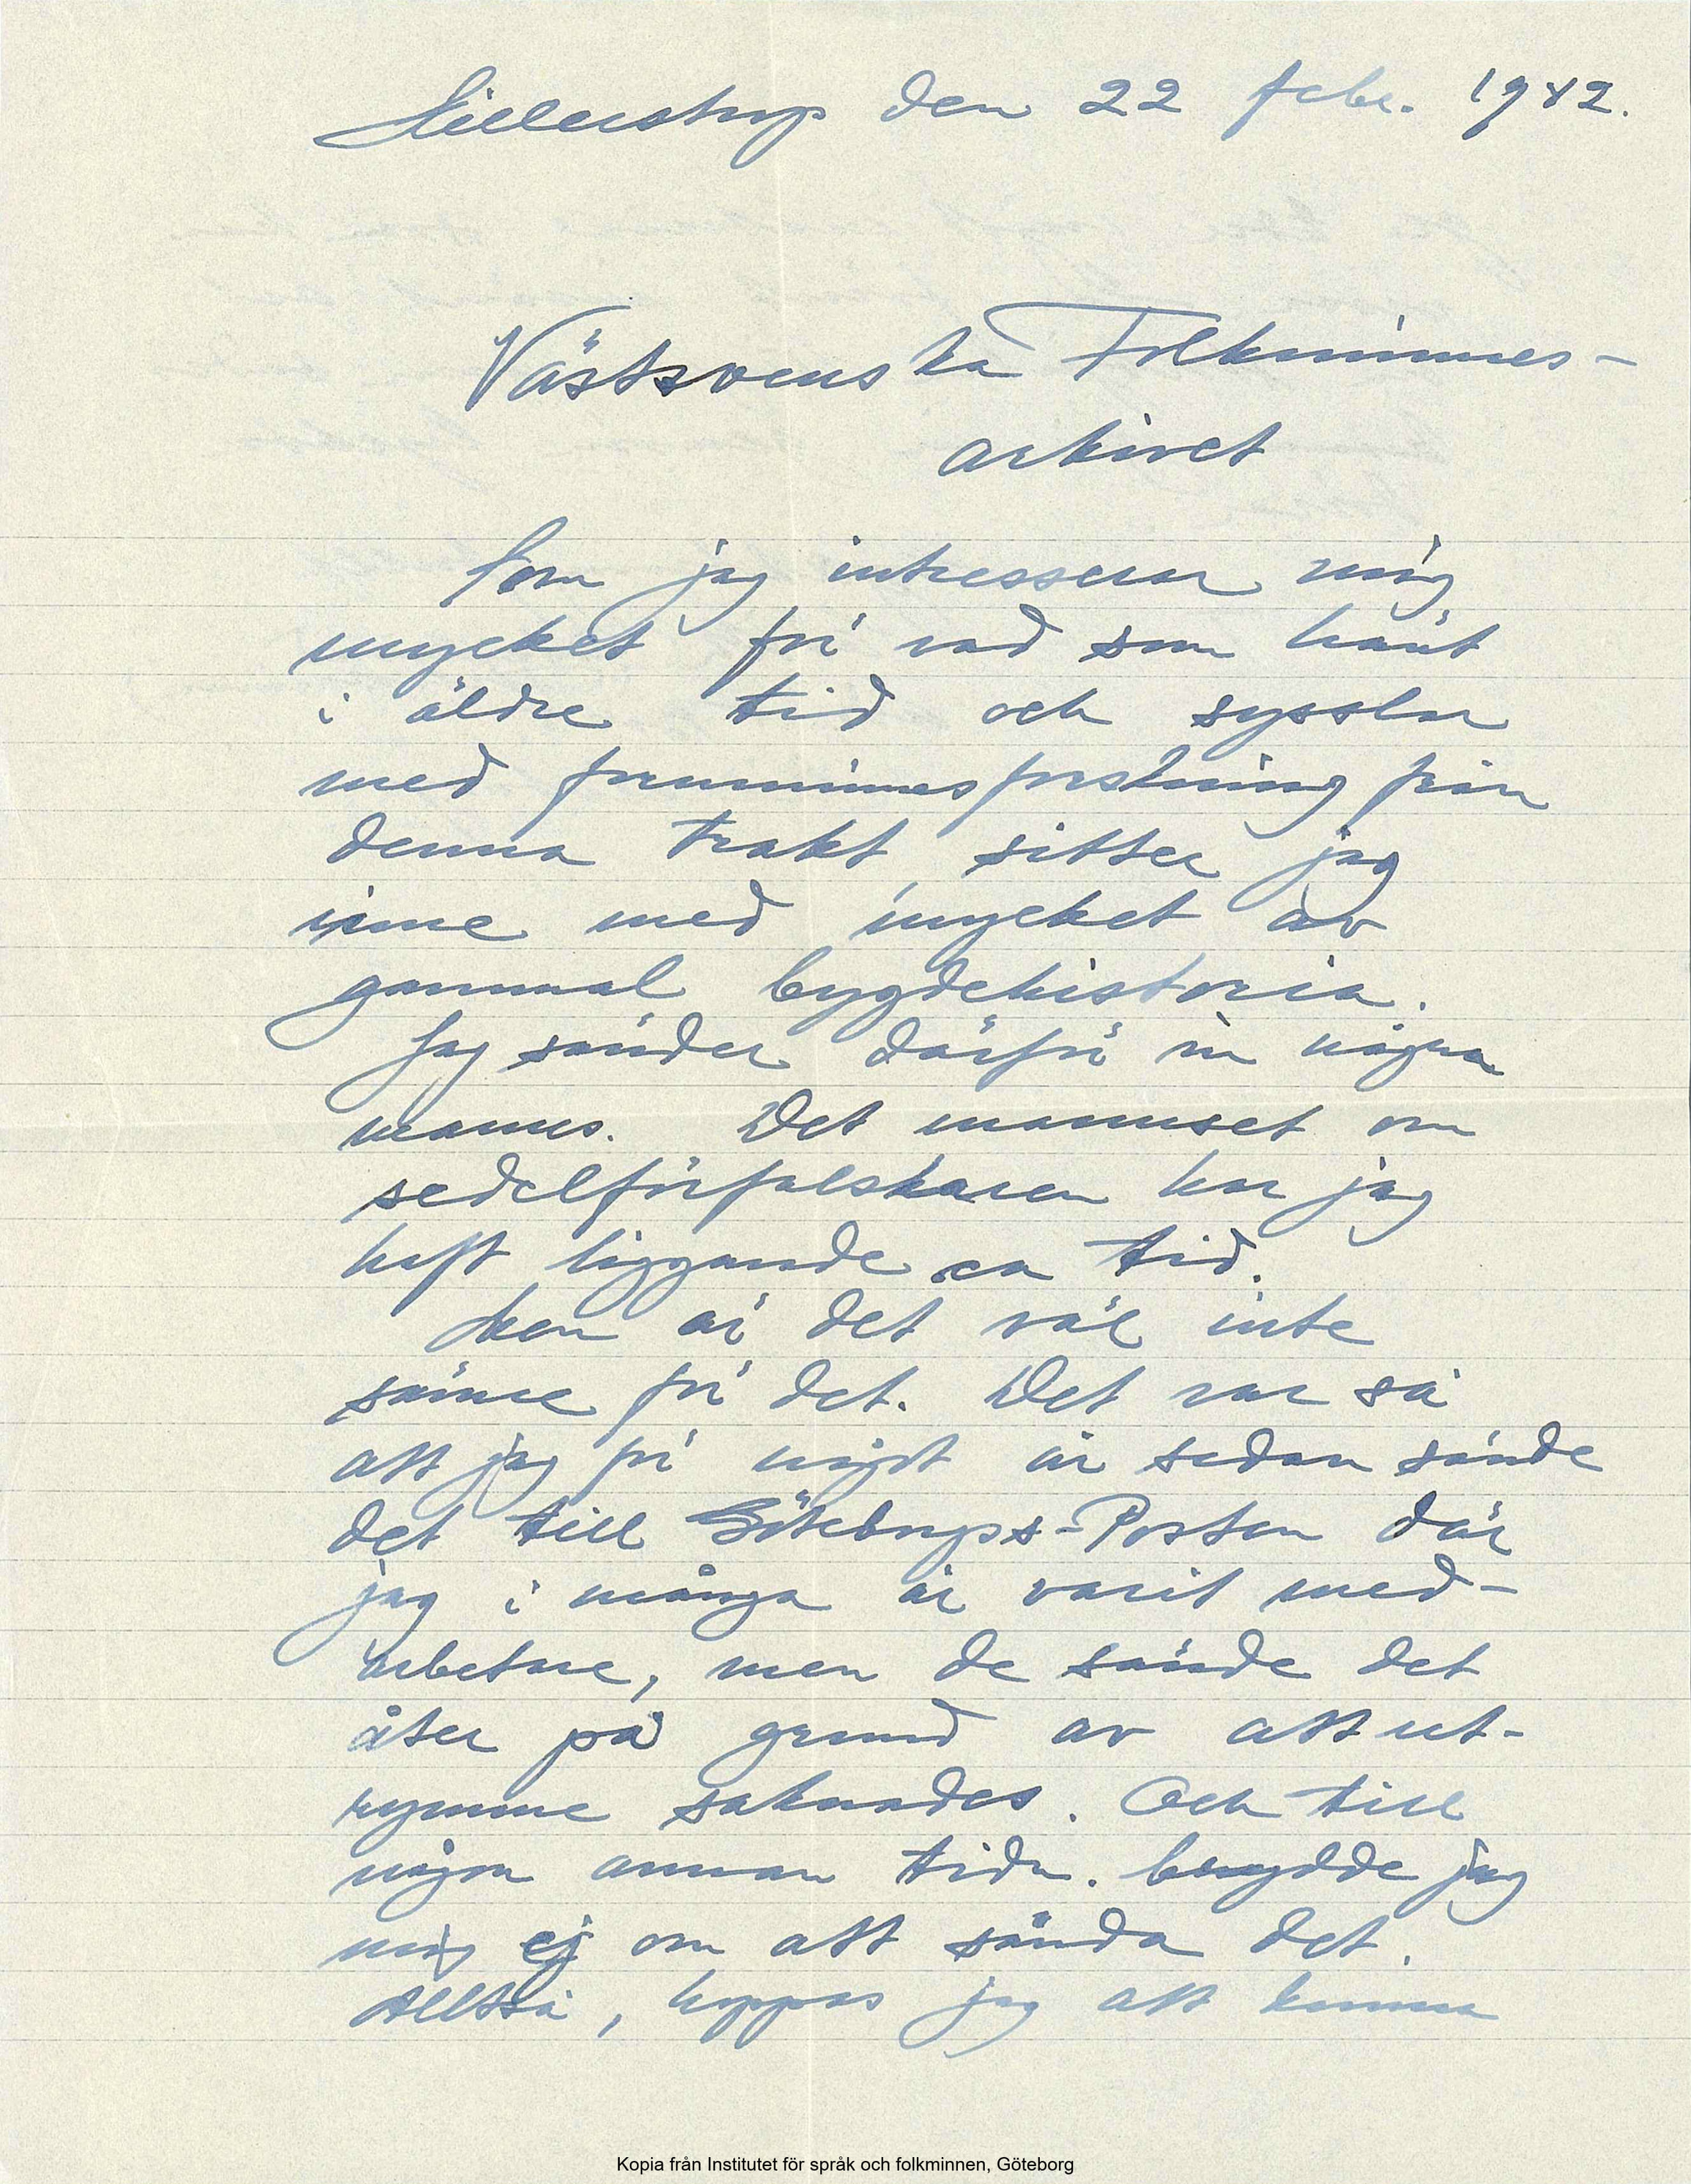 Hillerstorp den 22 febr. 1942.
Västsvenska Folkminnes-
arkivet
Som jag intresserar mig
mycket för vad som hänt
i äldre tid och sysslar
med fornminnesforskning från
denna trakt sitter jag
inne med mycket av
gammal bygdehistoria.
Jag sänder därför in några
manus. Det manuset om
sedelförfalskaren har jag
haft liggande en tid.
Men är det väl inte
sämre för det. Det var så
att jag för något år sedan sände
det till Göteborgs-Posten där
jag i många år varit med-
arbetare, men de sände det
åter på grund av att ut-
rymme saknades. Och till
någon annan tidn. brydde jag
mig ej om att sända det.
Alltså, hoppas jag att kunna
Kopia från Institutet för språk och folkminnen, Göteborg